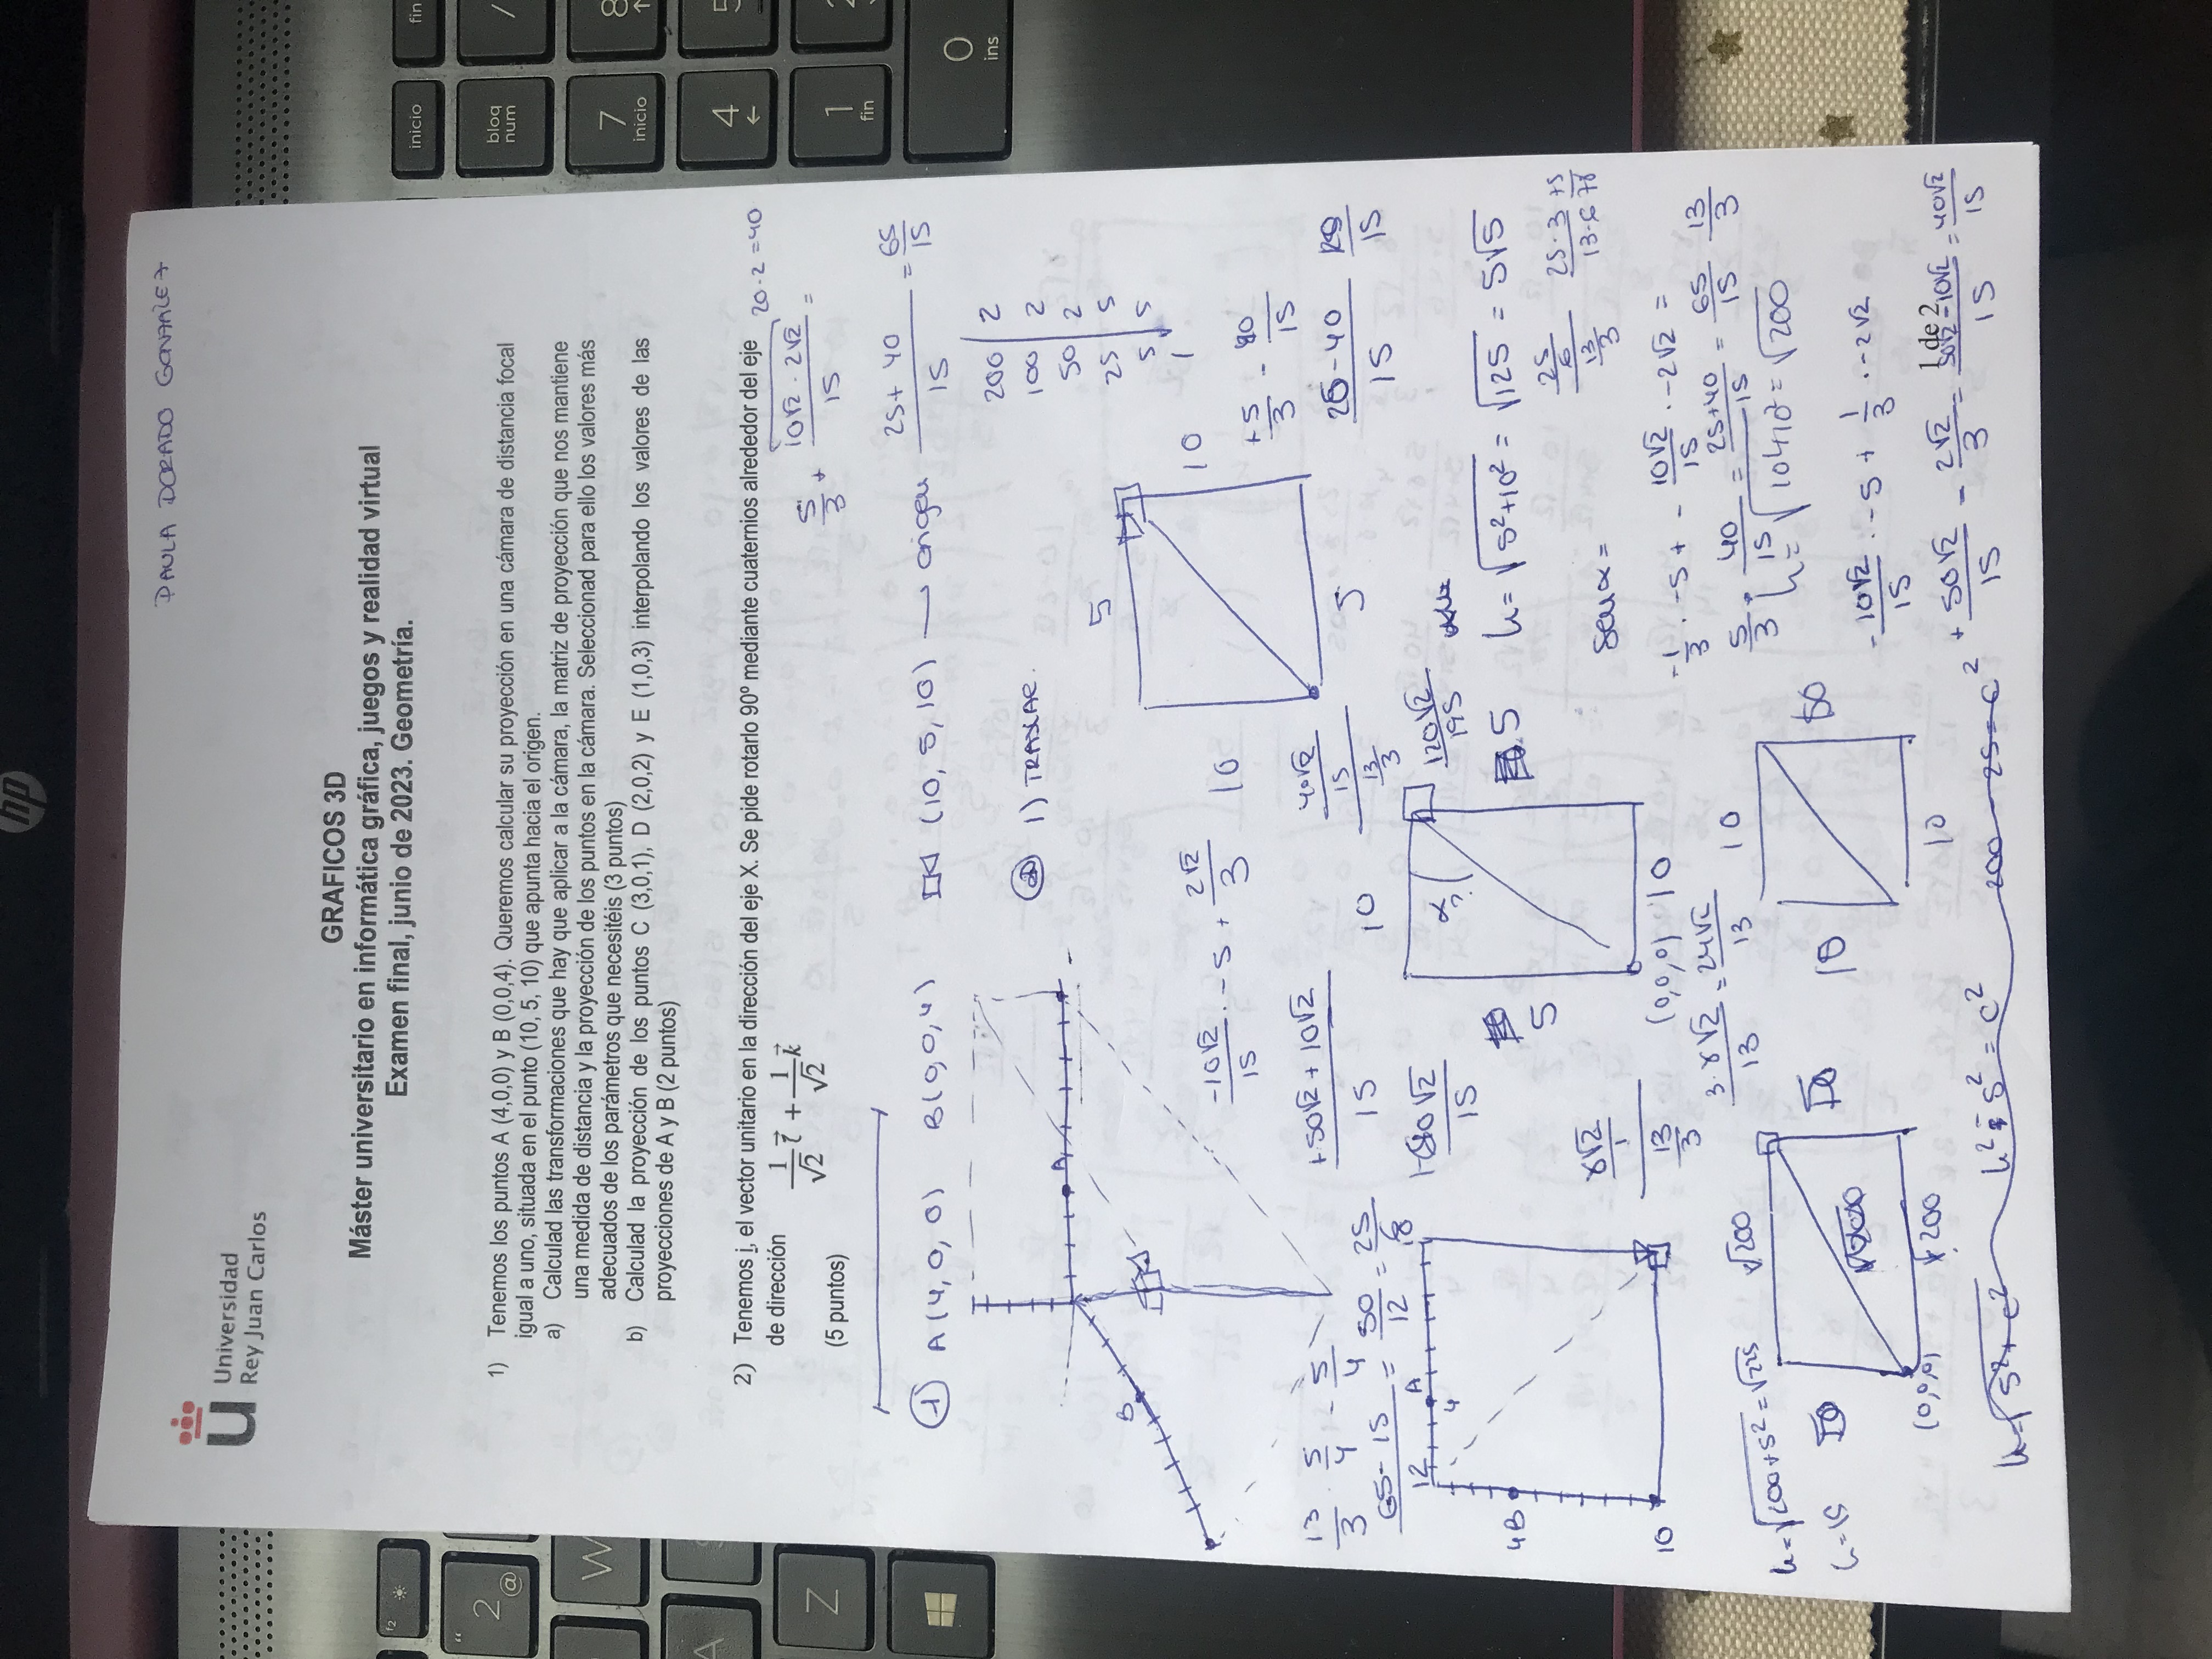 hp
PAULA DORADO GONZALEZ
Universidad
Rey Juan Carlos
GRAFICOS 3D
Máster universitario en informática gráfica, juegos y realidad virtual
Examen final, junio de 2023. Geometría.
1) Tenemos los puntos A (4,0,0) y B (0,0,4). Queremos calcular su proyección en una cámara de distancia focal
igual a uno, situada en el punto (10, 5, 10) que apunta hacia el origen.
a) Calculad las transformaciones que hay que aplicar a la cámara, la matriz de proyección que nos mantiene
una medida de distancia y la proyección de los puntos en la cámara. Seleccionad para ello los valores más
adecuados de los parámetros que necesitéis (3 puntos)
b) Calculad la proyección de los puntos C (3,0,1), D (2,0,2) y E (1,0,3) interpolando los valores de las
proyecciones de A y B (2 puntos)
2) Tenemos i, el vector unitario en la dirección del eje X. Se pide rotarlo 90º mediante cuaternios alrededor del eje
de dirección 1/√2 i + 1/√2 k
(5 puntos)
20·2=40
5/3 + 10√2·2√2/15 =
① A(4,0,0) B(0,0,4) (10,5,10) → origen
25+40/15 = 65/15
200 | 2
100 | 2
50 | 2
25 | 5
5 | 5
1
1) TRASLAC.
A
B
5
10
10
5
-10√2/15 · -5 + 2√2/3
+5/3 - 40/15
13/3 · 5/4 - 5/4
+50√2+10√2/15
40√2/15 / 13/3
25-40/15
65-15/12 = 50/12 = 25/6
12
A
4
4B
10
10
α?
5
5
(0,0,0) 10
120√2/195
h=√5²+10² = √125 = 5√5
25/6 / 13/3
25·3/13·6
sen α=
8√2/1 / 13/3
3·8√2/13 = 24√2/13
-1/3 · -5 + - 10√2/15 · -2√2 =
5/3 + 40/15 = 25+40/15 = 65/15 13/3
h=√200+5² = √225
h=15
√200
(0,0,0)
√200
10
10
10
h=√10²+10² = √200
-10√2/15 · -5 + 1/3 · -2√2
+ 50√2/15 - 2√2/3 = 50√2-10√2/15 = 40√2/15
1 de 2
h=√5²+c² h²-5²=c² 200-25=c²
f2
2
"
@
W
A
Z
inicio
fin
bloq
num
/
7
inicio
8
4
←
5
1
fin
2
0
ins